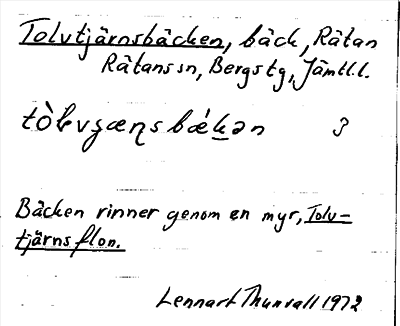 Tolvtjärnsbäcken, bäck, Rätan
Rätanssn, Bergstg, Jämtl.l.
Bäcken rinner genom en myr, Tolv-
tjärnsflon.
Lennart Thunvall 1972